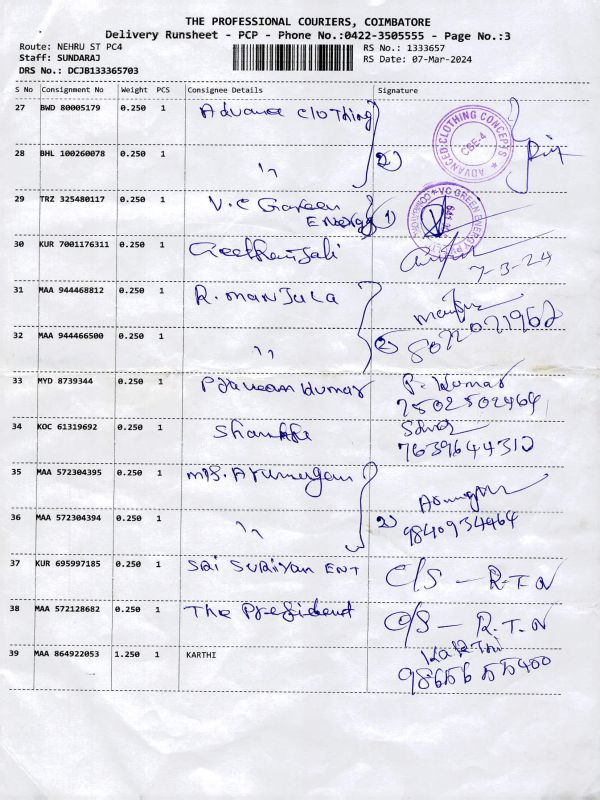 THE PROFESSIONAL COURIERS, COIMBATORE
Delivery Runsheet - PCP - Phone No.:0422-3505555 - Page No.:3
Route: NEHRU ST PC4
RS No.: 1333657
Staff: SUNDARAJ
RS Date: 07-Mar-2024
DRS No.: DCJB133365703
S No Consignment No Weight PCS Consignee Details Signature
27 BWD 80005179 0.250 1 Advance Clothing
ADVANCED CLOTHING CONCEPTS
CBE-4
28 BHL 100260078 0.250 1 " 2)
29 TRZ 325480117 0.250 1 V.C Green
Energy 1)
VC GREEN ENERGY
30 KUR 7001176311 0.250 1 Geethanjali
7-3-24
31 MAA 944468812 0.250 1 R. Manjula
32 MAA 944466500 0.250 1 " 2)
8072071962
33 MYD 8739344 0.250 1 P. Kumar
7502502464
34 KOC 61319692 0.250 1
7639644310
35 MAA 572304395 0.250 1 M/S. Arumugam
36 MAA 572304394 0.250 1 " 2)
9840934464
37 KUR 695997185 0.250 1 Sri Suriyan ENT C/S - R.T.N
38 MAA 572128682 0.250 1 The President C/S - R.T.N
39 MAA 864922053 1.250 1 KARTHI Karthi
98656 55400